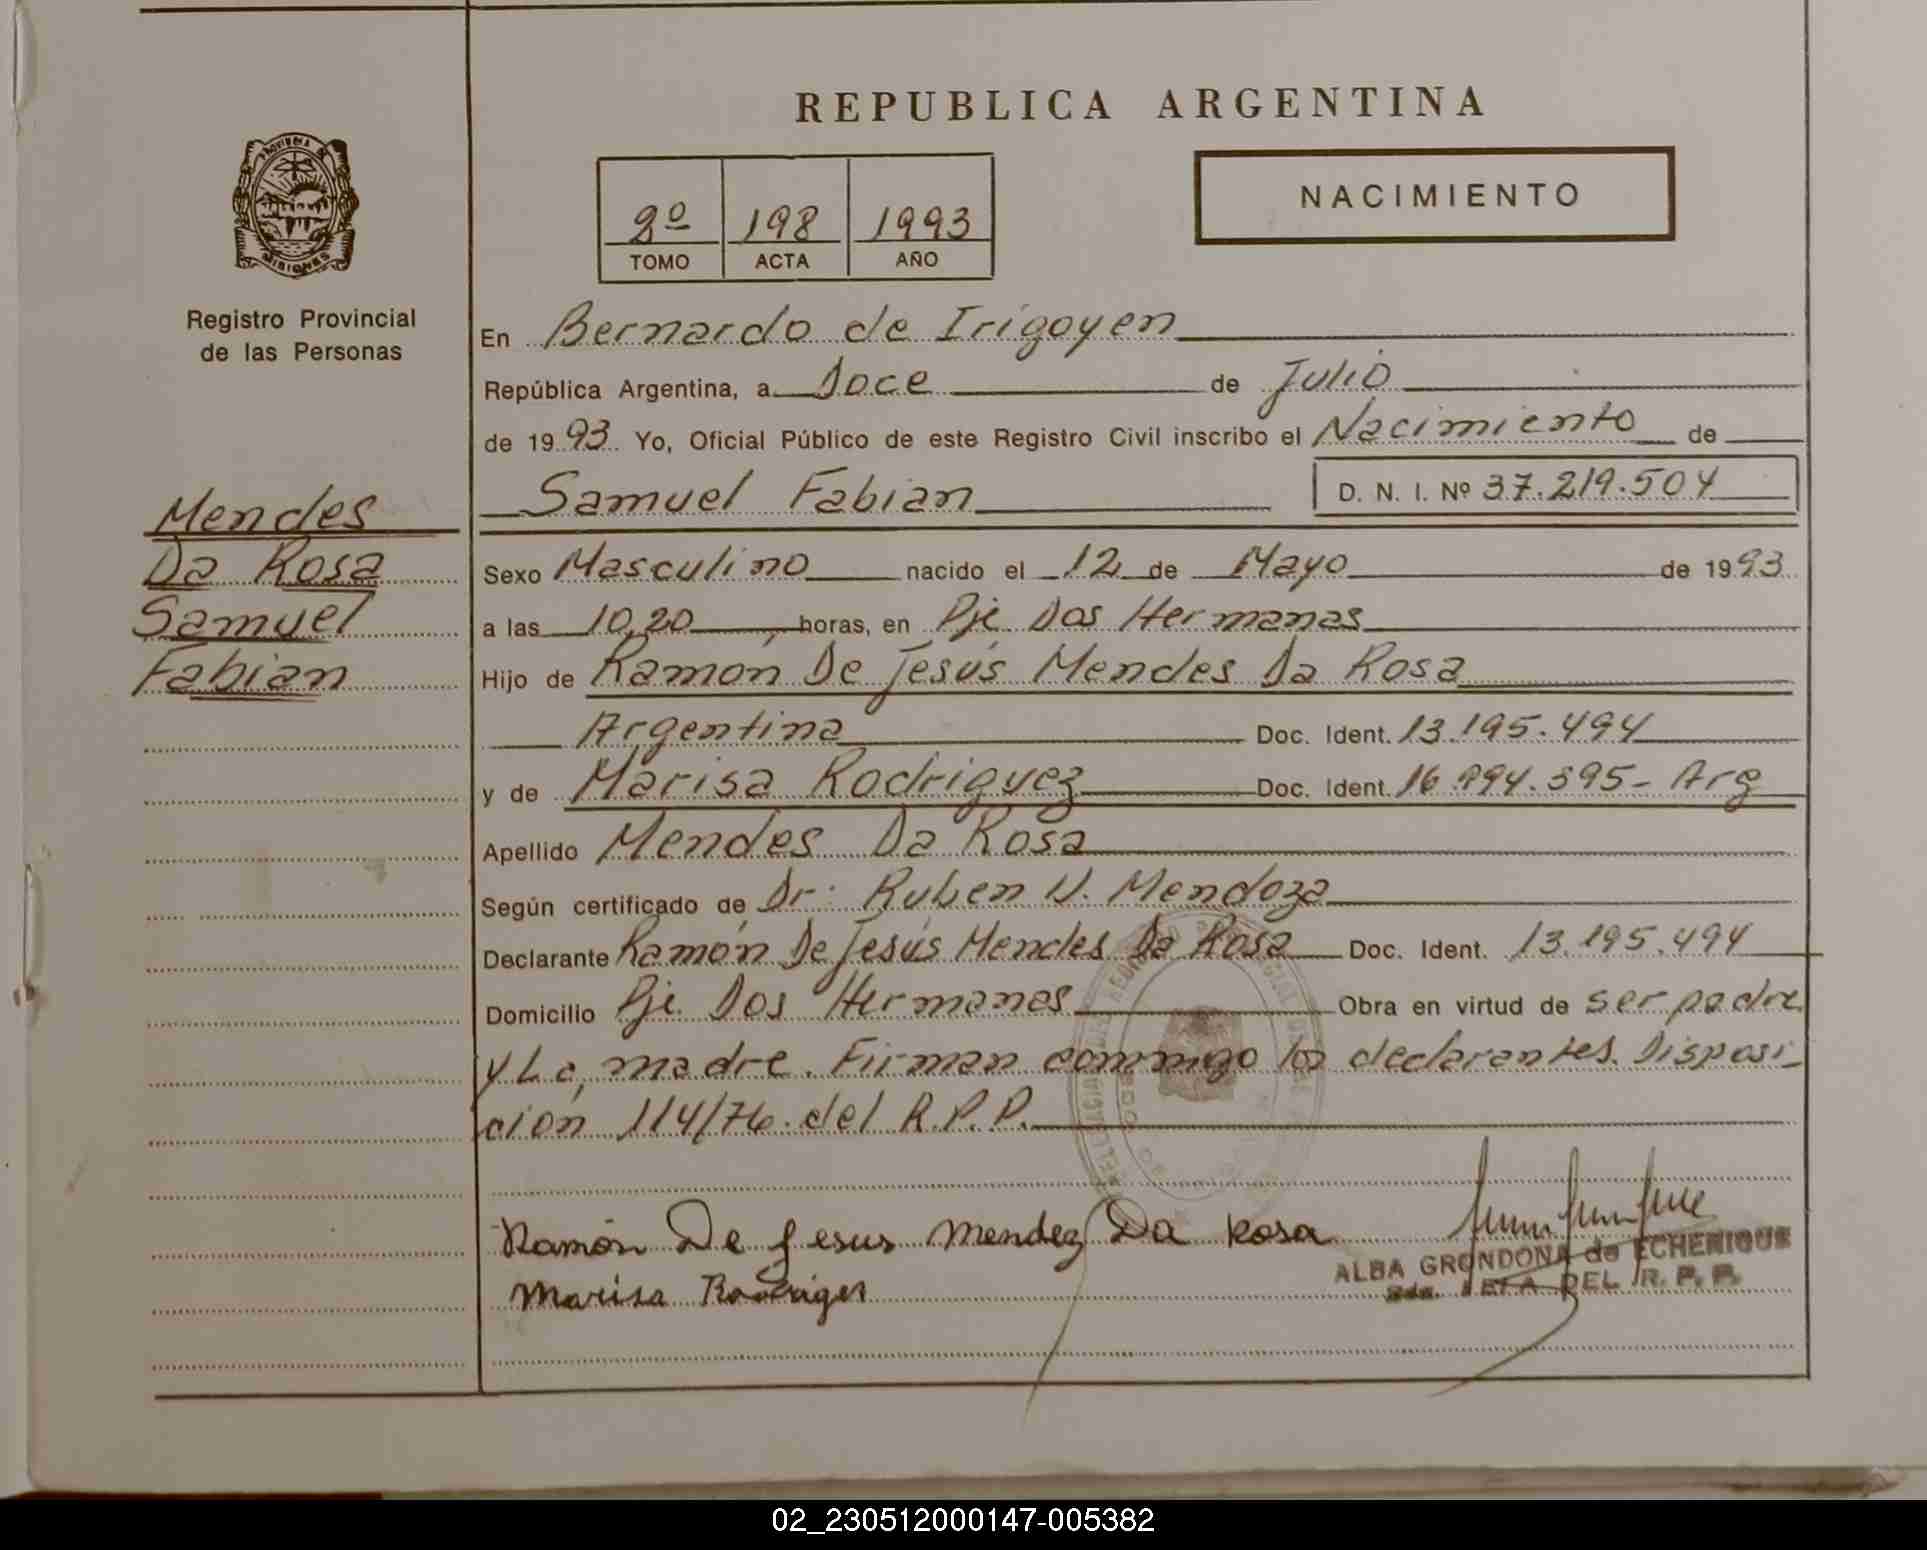 REPUBLICA ARGENTINA
PROVINCIA DE
MISIONES
2º 198 1993
TOMO ACTA AÑO
NACIMIENTO
Registro Provincial
de las Personas
En Bernardo de Irigoyen
República Argentina, a Doce de Julio
de 1993 Yo, Oficial Público de este Registro Civil inscribo el Nacimiento de
Samuel Fabian D. N. I. Nº 37.219.504
Mendes
Da Rosa
Samuel
Fabian
Sexo Masculino nacido el 12 de Mayo de 1993
a las 10,20 horas, en Pje Dos Hermanas
Hijo de Ramón De Jesús Mendes Da Rosa
Argentina Doc. Ident. 13.195.494
y de Marisa Rodriguez Doc. Ident. - Arg
Apellido Mendes Da Rosa
Según certificado de Dr: Ruben V. Mendoza
Declarante Ramón De Jesús Mendes Da Rosa Doc. Ident. 13.195.494
Domicilio Pje. Dos Hermanas Obra en virtud de ser padre
y La madre. Firman conmigo los declarantes. Disposi-
ción 114/76. del R.P.P.
Ramón De Jesus Mendez Da Rosa
ALBA GRONDONA de ECHENIQUE
2da. JEFA DEL R. P. P.
Marisa
02_230512000147-005382